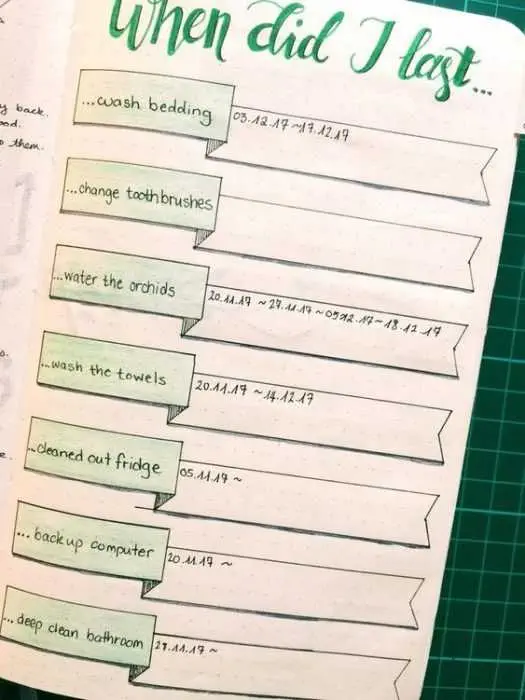 When did I last...
...wash bedding
03.12.17~17.12.17
...change toothbrushes
...water the orchids
20.11.17 ~27.11.17~05.12.17~18.12.17
...wash the towels
20.11.17 ~14.12.17
...cleaned out fridge
05.11.17 ~
... backup computer
20.11.17 ~
... deep clean bathroom
27.11.17 ~
back.
them.